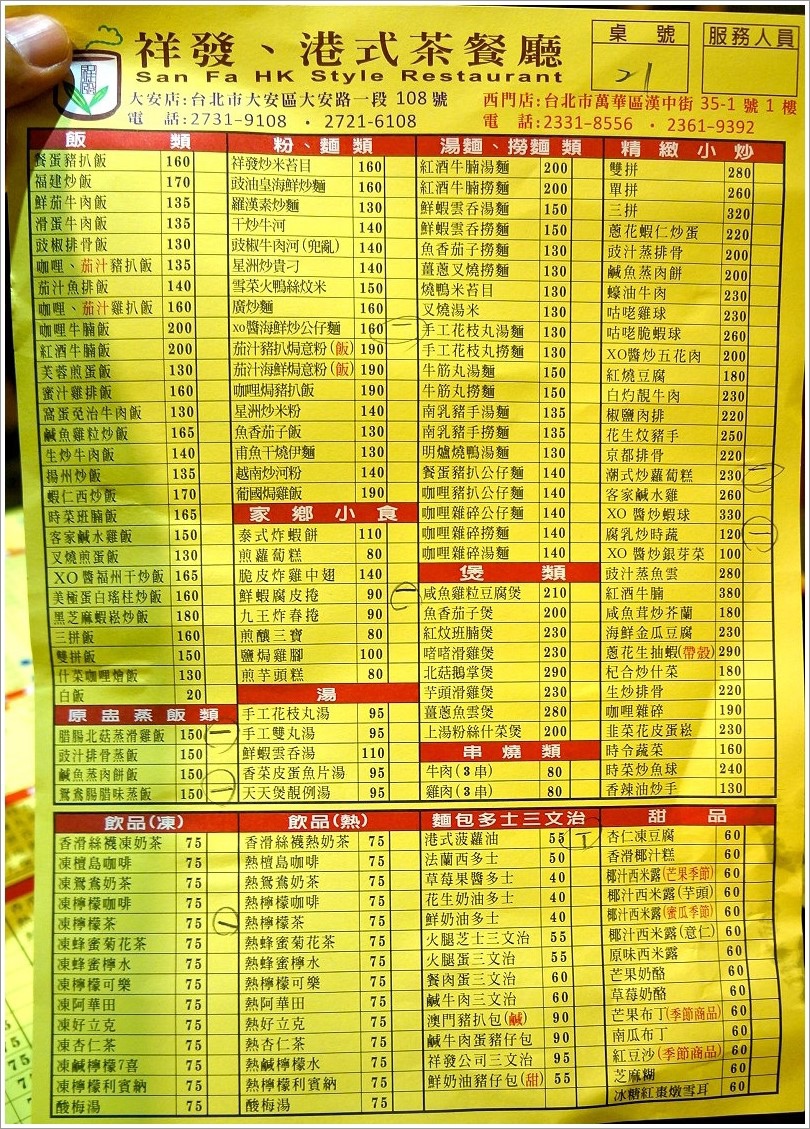 祥發、港式茶餐廳
San Fa HK Style Restaurant
桌號
21
服務人員
大安店:台北市大安區大安路一段 108 號
電 話:2731-9108 · 2721-6108
西門店:台北市萬華區漢中街 35-1 號 1 樓
電 話:2331-8556 · 2361-9392
飯類
餐蛋豬扒飯 160
福建炒飯 170
鮮茄牛肉飯 135
滑蛋牛肉飯 135
豉椒排骨飯 130
咖哩、茄汁豬扒飯 135
茄汁魚排飯 140
咖哩、茄汁雞扒飯 160
咖哩牛腩飯 200
紅酒牛腩飯 200
芙蓉煎蛋飯 130
蜜汁雞排飯 160
窩蛋免治牛肉飯 130
鹹魚雞粒炒飯 165
生炒牛肉飯 140
揚州炒飯 135
蝦仁西炒飯 170
時菜班腩飯 165
客家鹹水雞飯 150
叉燒煎蛋飯 130
XO醬福州干炒飯 165
美極蛋白瑤柱炒飯 160
黑芝麻蝦崧炒飯 180
三拼飯 160
雙拼飯 150
什菜咖哩燴飯 130
白飯 20
原盅蒸飯類
腊腸北菇蒸滑雞飯 150 一
豉汁排骨蒸飯 150
鹹魚蒸肉餅飯 150
鴛鴦腸腊味蒸飯 150 一
粉、麵類
祥發炒米苔目 160
豉油皇海鮮炒麵 160
羅漢素炒麵 130
干炒牛河 140
豉椒牛肉河(兜亂) 140
星洲炒貴刁 140
雪菜火鴨絲炆米 150
廣炒麵 160
xo醬海鮮炒公仔麵 160 一
茄汁豬扒焗意粉(飯) 190
茄汁海鮮焗意粉(飯) 190
咖哩焗豬扒飯 190
星洲炒米粉 140
魚香茄子飯 130
甫魚干燒伊麵 130
越南炒河粉 140
葡國焗雞飯 190
家鄉小食
泰式炸蝦餅 110
煎蘿蔔糕 80
脆皮炸雞中翅 140
鮮蝦腐皮捲 90 一
九王炸春捲 90
煎釀三寶 80
鹽焗雞腳 100
煎芋頭糕 80
湯
手工花枝丸湯 95
手工雙丸湯 95
鮮蝦雲吞湯 110
香菜皮蛋魚片湯 95
天天煲靚例湯 95
湯麵、撈麵類
紅酒牛腩湯麵 200
紅酒牛腩撈麵 200
鮮蝦雲吞湯麵 150
鮮蝦雲吞撈麵 150
魚香茄子撈麵 130
薑蔥叉燒撈麵 130
燒鴨米苔目 130
叉燒湯米 130
手工花枝丸湯麵 130
手工花枝丸撈麵 130
牛筋丸湯麵 150
牛筋丸撈麵 150
南乳豬手湯麵 135
南乳豬手撈麵 135
明爐燒鴨湯麵 130
餐蛋豬扒公仔麵 140
咖哩豬扒公仔麵 140
咖哩雞扒公仔麵 140
咖哩雜碎撈麵 140
咖哩雜碎湯麵 140
煲類
咸魚雞粒豆腐煲 210
魚香茄子煲 200
紅炆班腩煲 230
啫啫滑雞煲 230
北菇鵝掌煲 290
芋頭滑雞煲 230
薑蔥魚雲煲 280
上湯粉絲什菜煲 200
串燒類
牛肉(3串) 80
雞肉(3串) 80
精緻小炒
雙拼 280
單拼 260
三拼 320
蔥花蝦仁炒蛋 220
豉汁蒸排骨 200
鹹魚蒸肉餅 200
蠔油牛肉 230
咕咾雞球 230
咕咾脆蝦球 260
XO醬炒五花肉 200
紅燒豆腐 180
白灼靚牛肉 230
椒鹽肉排 220
花生炆豬手 250
京都排骨 220
潮式炒蘿蔔糕 230 一
客家鹹水雞 260
XO 醬炒蝦球 330
腐乳炒時蔬 120 一
XO 醬炒銀芽菜 100
豉汁蒸魚雲 280
紅酒牛腩 380
咸魚茸炒芥蘭 180
海鮮金瓜豆腐 230
蔥花生抽蝦(帶殼) 290
杞合炒什菜 180
生炒排骨 220
咖哩雜碎 190
韭菜花皮蛋崧 230
時令蔬菜 160
時菜炒魚球 240
香辣油炒手 130
飲品(凍)
香滑絲襪凍奶茶 75
凍檀島咖啡 75
凍鴛鴦奶茶 75
凍檸檬咖啡 75
凍檸檬茶 75 一
凍蜂蜜菊花茶 75
凍蜂蜜檸水 75
凍檸檬可樂 75
凍阿華田 75
凍好立克 75
凍杏仁茶 75
凍鹹檸檬7喜 75
凍檸檬利賓納 75
酸梅湯 75
飲品(熱)
香滑絲襪熱奶茶 75
熱檀島咖啡 75
熱鴛鴦奶茶 75
熱檸檬咖啡 75
熱檸檬茶 75
熱蜂蜜菊花茶 75
熱蜂蜜檸水 75
熱檸檬可樂 75
熱阿華田 75
熱好立克 75
熱杏仁茶 75
熱鹹檸檬水 75
熱檸檬利賓納 75
酸梅湯 75
麵包多士三文治
港式菠蘿油 55
法蘭西多士 50
草莓果醬多士 40
花生奶油多士 40
鮮奶油多士 40
火腿芝士三文治 55
火腿蛋三文治 55
餐肉蛋三文治 60
鹹牛肉三文治 60
澳門豬扒包(鹹) 90
鹹牛肉蛋豬仔包 90
祥發公司三文治 95
鮮奶油豬仔包(甜) 55
甜品
杏仁凍豆腐 60
香滑椰汁糕 60
椰汁西米露(芒果季節) 60
椰汁西米露(芋頭) 60
椰汁西米露(蜜瓜季節) 60
椰汁西米露(意仁) 60
原味西米露 60
芒果奶酪 60
草莓奶酪 60
芒果布丁(季節商品) 60
南瓜布丁 60
紅豆沙(季節商品) 60
芝麻糊 60
冰糖紅棗燉雪耳 60